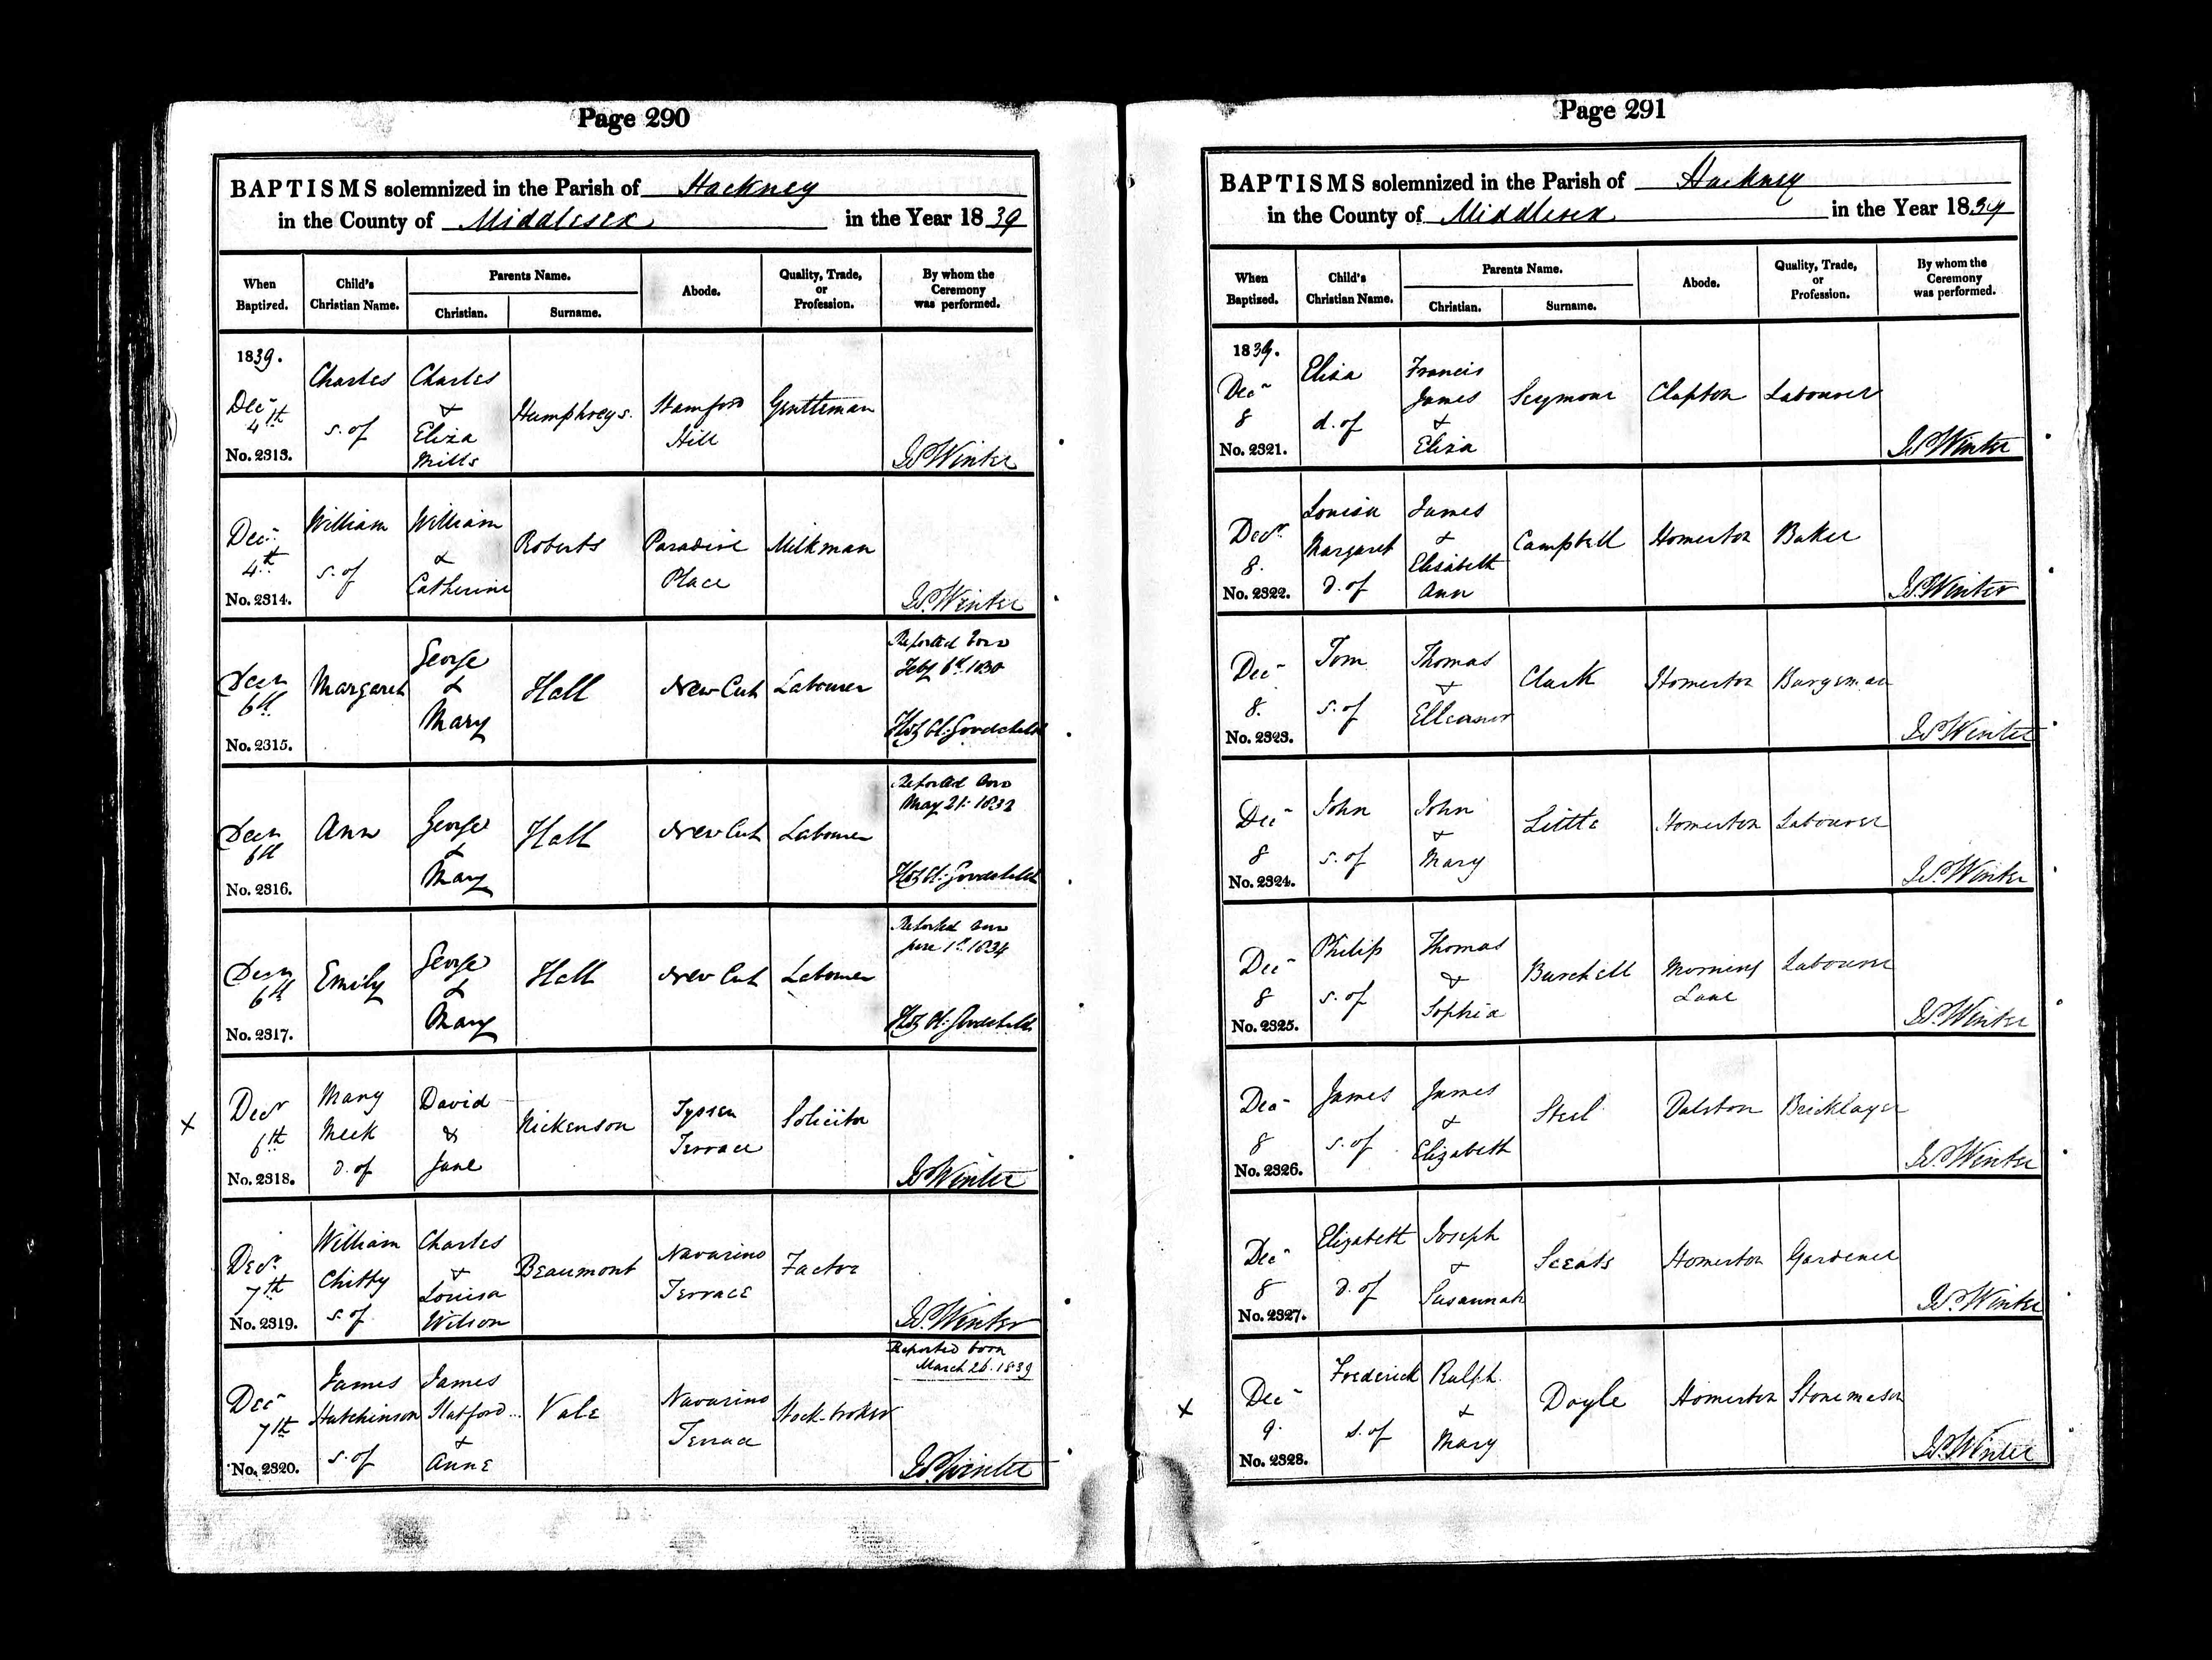 Page 290
BAPTISMS solemnized in the Parish of Hackney
in the County of Middlesex in the Year 1839
When Baptized. Child's Christian Name. Parents Name. Christian. Surname. Abode. Quality, Trade, or Profession. By whom the Ceremony was performed.
1839.
Decr 4th No. 2313. Charles s. of Charles & Eliza Mills Humphreys. Stamford Hill Gentleman Winter
Decr 4th No. 2314. William s. of William & Catherine Roberts Paradise Place Milkman Winter
Decr 6th No. 2315. Margaret George & Mary Hall New Cut Labourer Reported born Feby 6th 1830
Decr 6th No. 2316. Ann George & Mary Hall New Cut Labourer Reported born May 21st
Decr 6th No. 2317. Emily George & Mary Hall New Cut Labourer Reported born June 1st 1834
x Decr 6th No. 2318. Mary Meek d. of David & Jane Nickenson Tyssen Terrace Solicitor Winter
Decr 7th No. 2319. William Chitty s. of Charles & Louisa Wilson Beaumont Navarino Terrace Factor Winter
Decr 7th No. 2320. James Hutchinson s. of James & Anne Vale Navarino Terrace Stock-broker Reported born March 26. 1839 Winter
Page 291
BAPTISMS solemnized in the Parish of Hackney
in the County of Middlesex in the Year 1839
When Baptized. Child's Christian Name. Parents Name. Christian. Surname. Abode. Quality, Trade, or Profession. By whom the Ceremony was performed.
1839.
Decr 8 No. 2321. Eliza d. of Francis James & Eliza Seymour Clapton Labourer Winter
Decr 8. No. 2322. Louisa Margaret d. of James & Elisabeth Ann Campbell Homerton Baker Winter
Decr 8. No. 2323. Tom s. of Thomas & Elleanor Clark Homerton Bargeman Winter
Decr 8 No. 2324. John s. of John & Mary Little Homerton Labourer Winter
Decr 8 No. 2325. Philip s. of Thomas & Sophia Burchell Morning Lane Labourer Winter
Decr 8 No. 2326. James s. of James & Elizabeth Steel Dalston Bricklayer Winter
Decr 8 No. 2327. Elizabeth d. of Joseph & Susannah Sceats Homerton Gardener Winter
x Decr 9. No. 2328. Frederick s. of Ralph & Mary Doyle Homerton Stonemason Winter